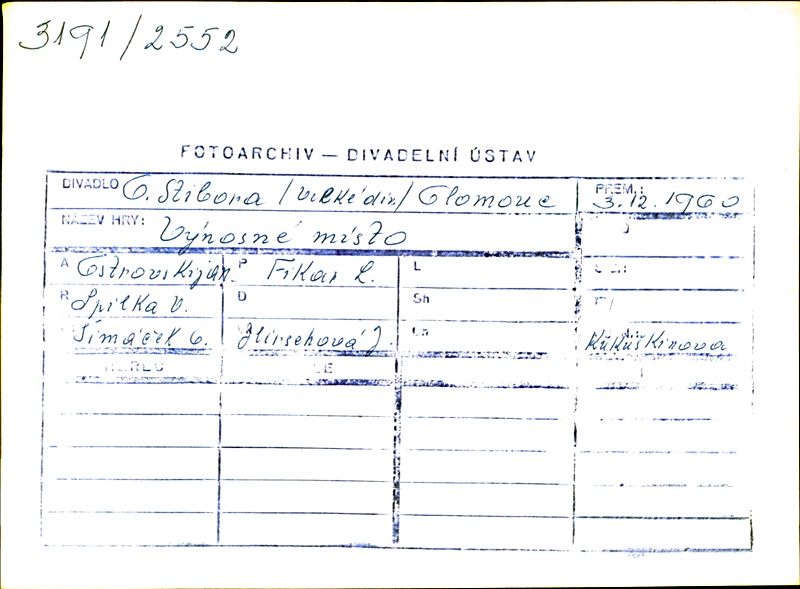 3191/2552
FOTOARCHIV — DIVADELNÍ ÚSTAV
DIVADLO O. Stibora /velké div/ Olomouc PREM.: 3.12.1960
NÁZEV HRY: Výnosné místo
A Ostrovskij P Fikar L. L
R Spilka V. D Sh
Šimáček O. Hirschová J. Kukuškinova